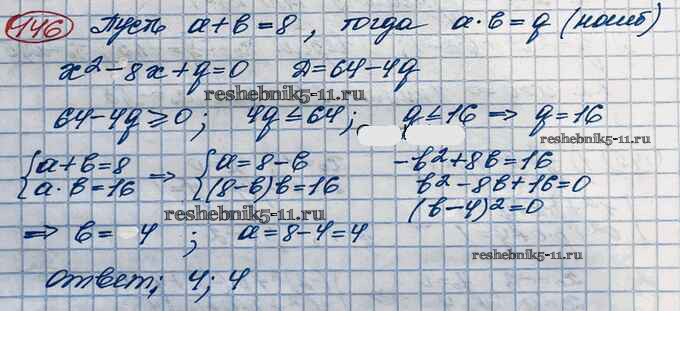 146 Пусть a+b=8, тогда a·b=q (наиб)
x²-8x+q=0 D=64-4q
reshebnik5-11.ru
64-4q≥0; 4q≤64; q≤16 ⇒ q=16
reshebnik5-11.ru
{a+b=8 ⇒ {a=8-b -b²+8b=16
{a·b=16 {(8-b)b=16 b²-8b+16=0
reshebnik5-11.ru (b-4)²=0
⇒ b=4; a=8-4=4
reshebnik5-11.ru
Ответ; 4; 4